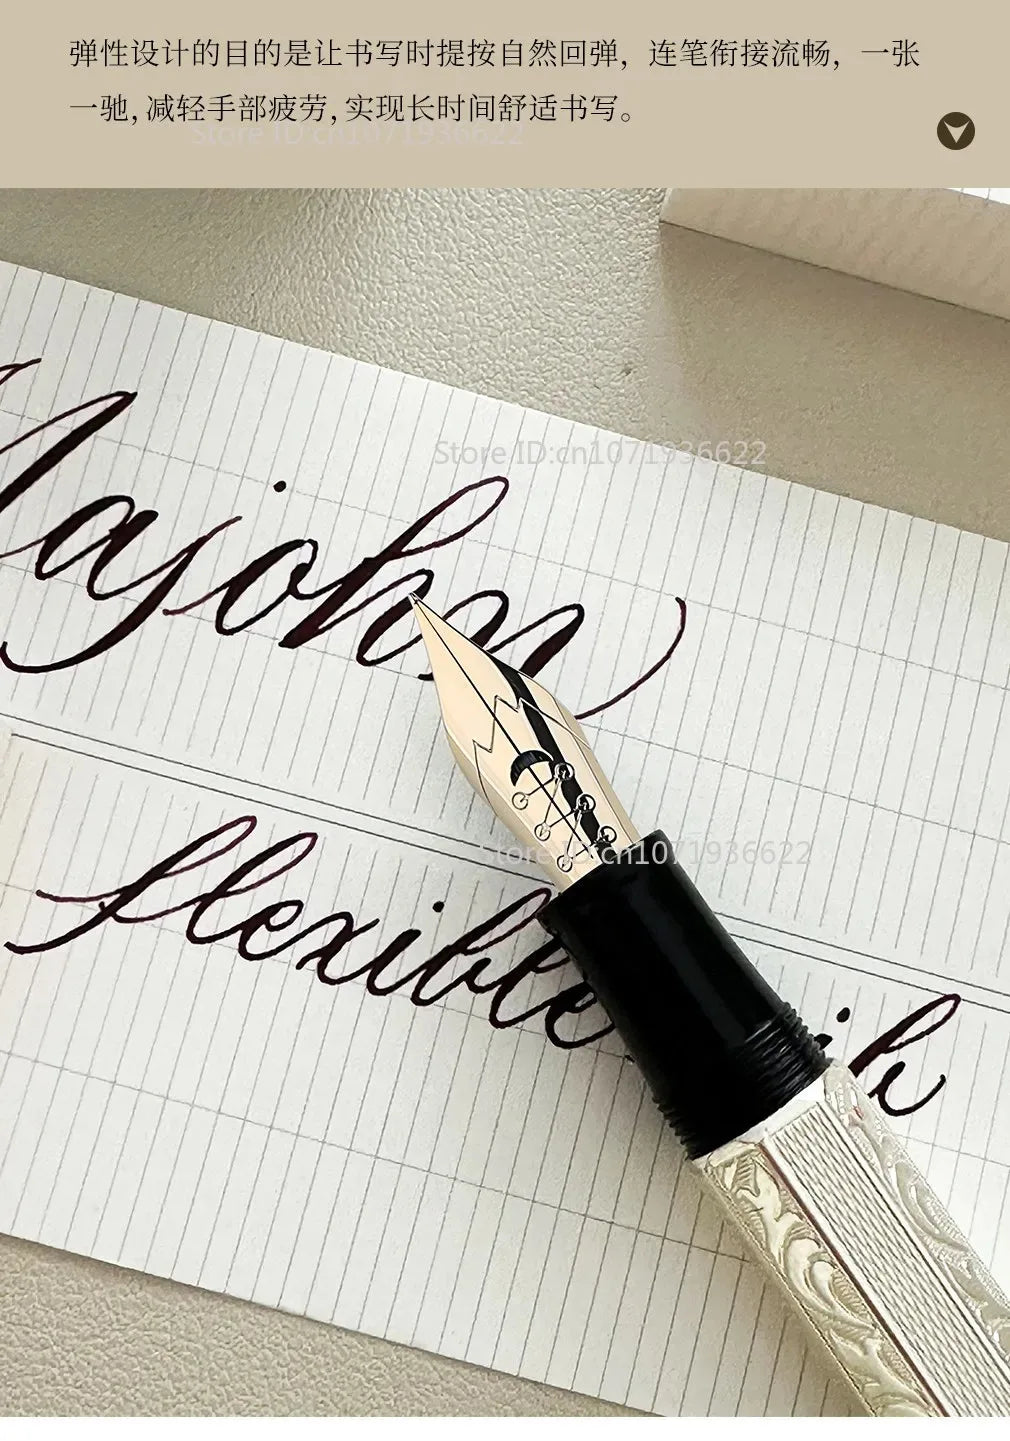 弹性设计的目的是让书写时提按自然回弹，连笔衔接流畅，一张
一驰,减轻手部疲劳,实现长时间舒适书写。
Store ID:cn1071936622
Store ID:cn1071936622
Majohn
Store ID:cn1071936622
flexible